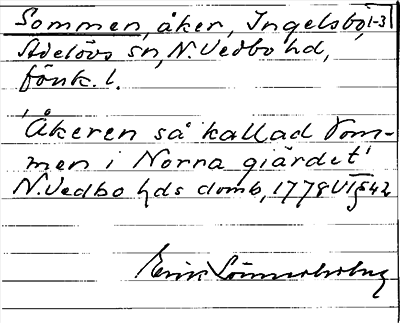 Sommen, åker, Ingelsbo, 1-3
Adelövs sn, N. Vedbo hd,
Jönk. l.
"Åkeren så kallad Som-
men i Norna giärdet"
N. Vedbo hds domb, 1778 VI § 42
Erik